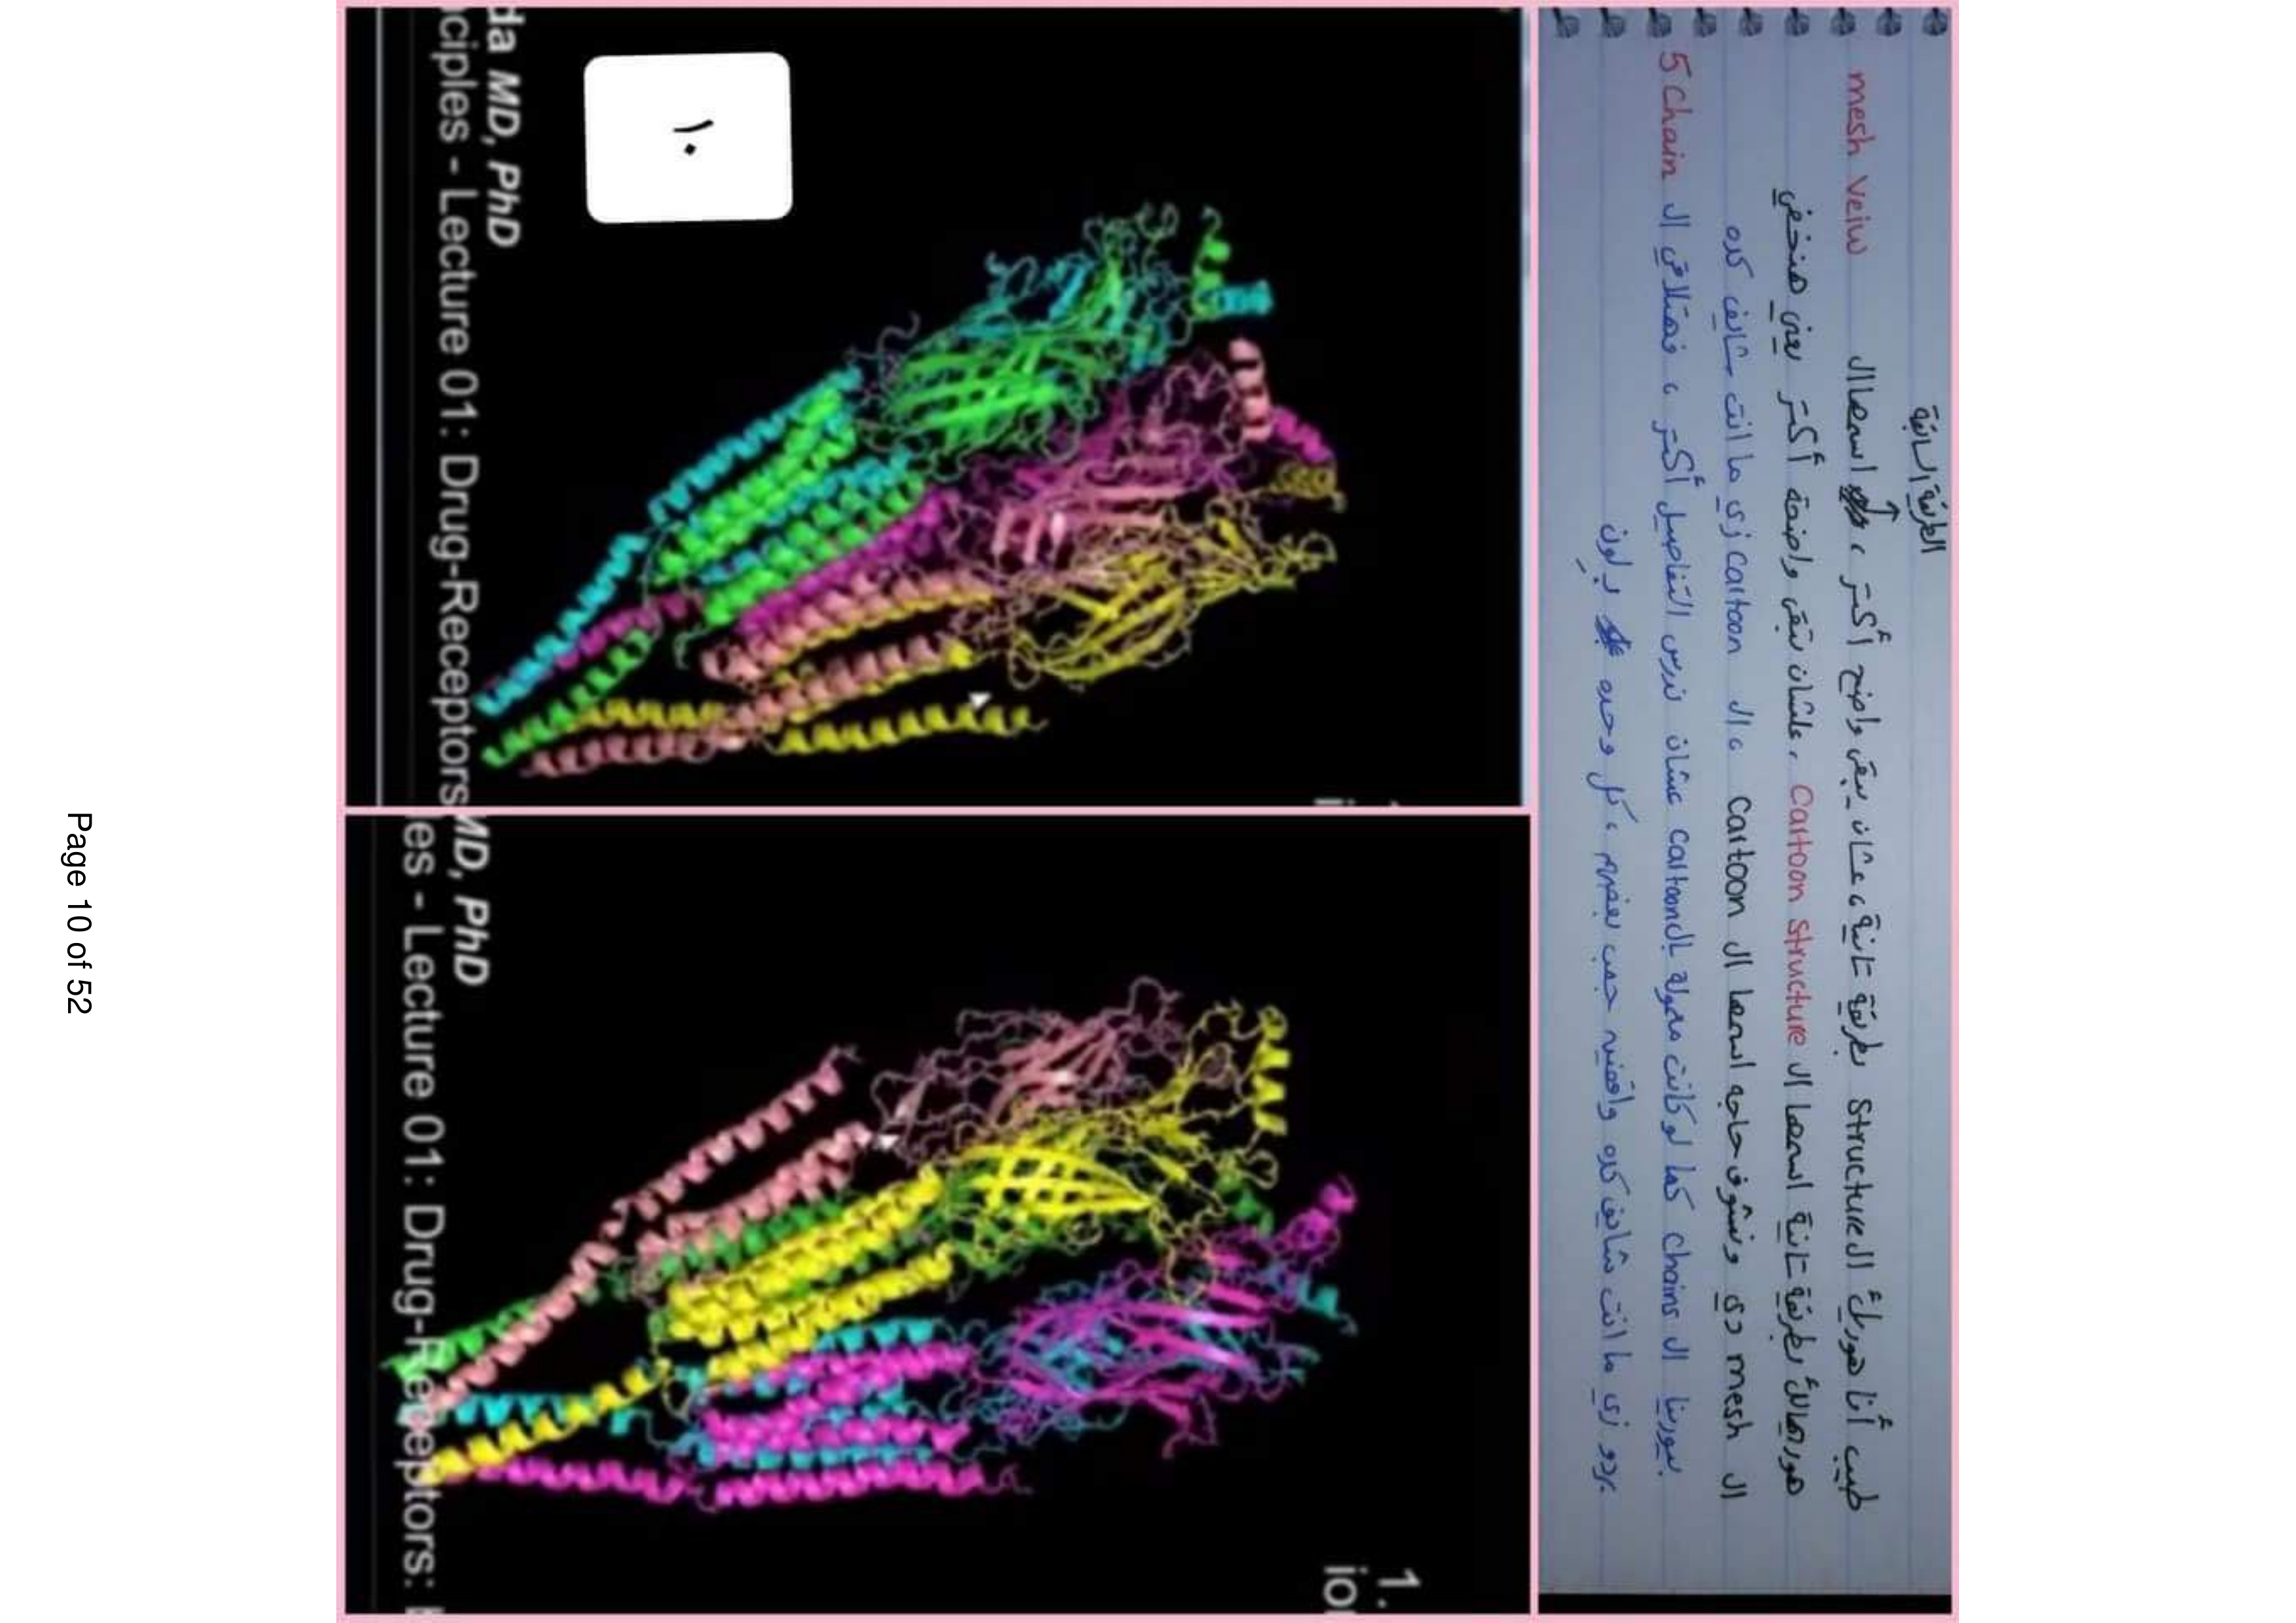 الطريقة الثانية
طيب أنا هوريك الـ structure بطريقة تانية ، عشان يبقى واضح أكتر ، اسمها الـ mesh veiw
هوريهالك بطريقة تانية اسمها الـ Cartoon Structure ، علشان تبقى واضحة أكتر يعني هنخفي
الـ mesh دي ونشوف حاجه اسمها الـ Cartoon ، الـ cartoon زي ما انت شايف كده
بيورينا الـ chains كما لو كانت معمولة بالـ cartoon عشان ندرس التفاصيل أكتر ، فهتلاقي الـ 5 Chain
بردو زي ما انت شايف كده واقفين جمب بعضهم ، كل وحده بـ لون
١٠
da MD, PhD
ciples - Lecture 01: Drug-Receptors
MD, PhD
es - Lecture 01: Drug-Receptors:
1.
io
Page 10 of 52